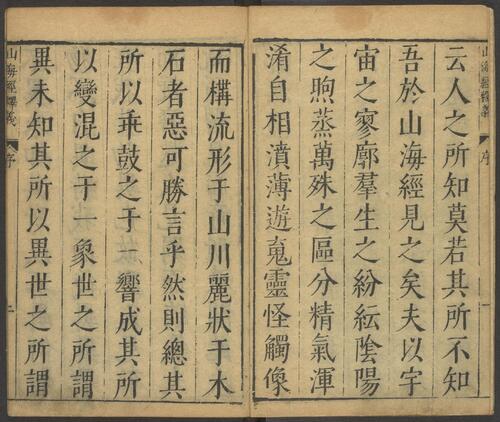 山海經釋義 序
云人之所知莫若其所不知
吾於山海經見之矣夫以宇
宙之寥廓羣生之紛紜陰陽
之煦蒸萬殊之區分精氣渾
淆自相濆薄遊䰟靈怪觸像
而構流形于山川麗狀于木
石者惡可勝言乎然則總其
所以乖鼓之于一響成其所
以變混之于一象世之所謂
異未知其所以異世之所謂
山海經釋義 序 二